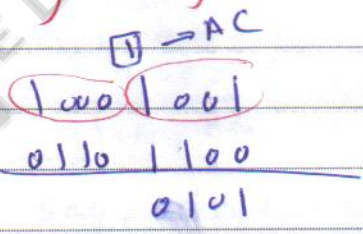 1 → AC
1000 1001
0110 1100
0101